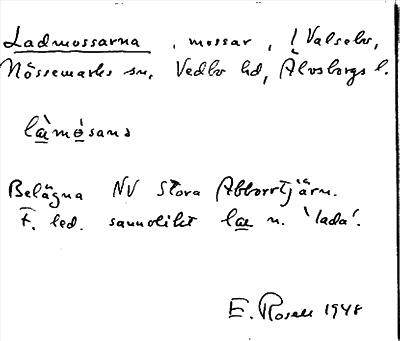 Ladmossarna, mossar, i Valsebo,
Nössemarks sn, Vedbo hd, Älvsborgs l.
læ̀mósans
Belägna NV Stora Abborrtjärn.
F. led. sannolikt læ n. 'lada'.
E. Rosell 1948